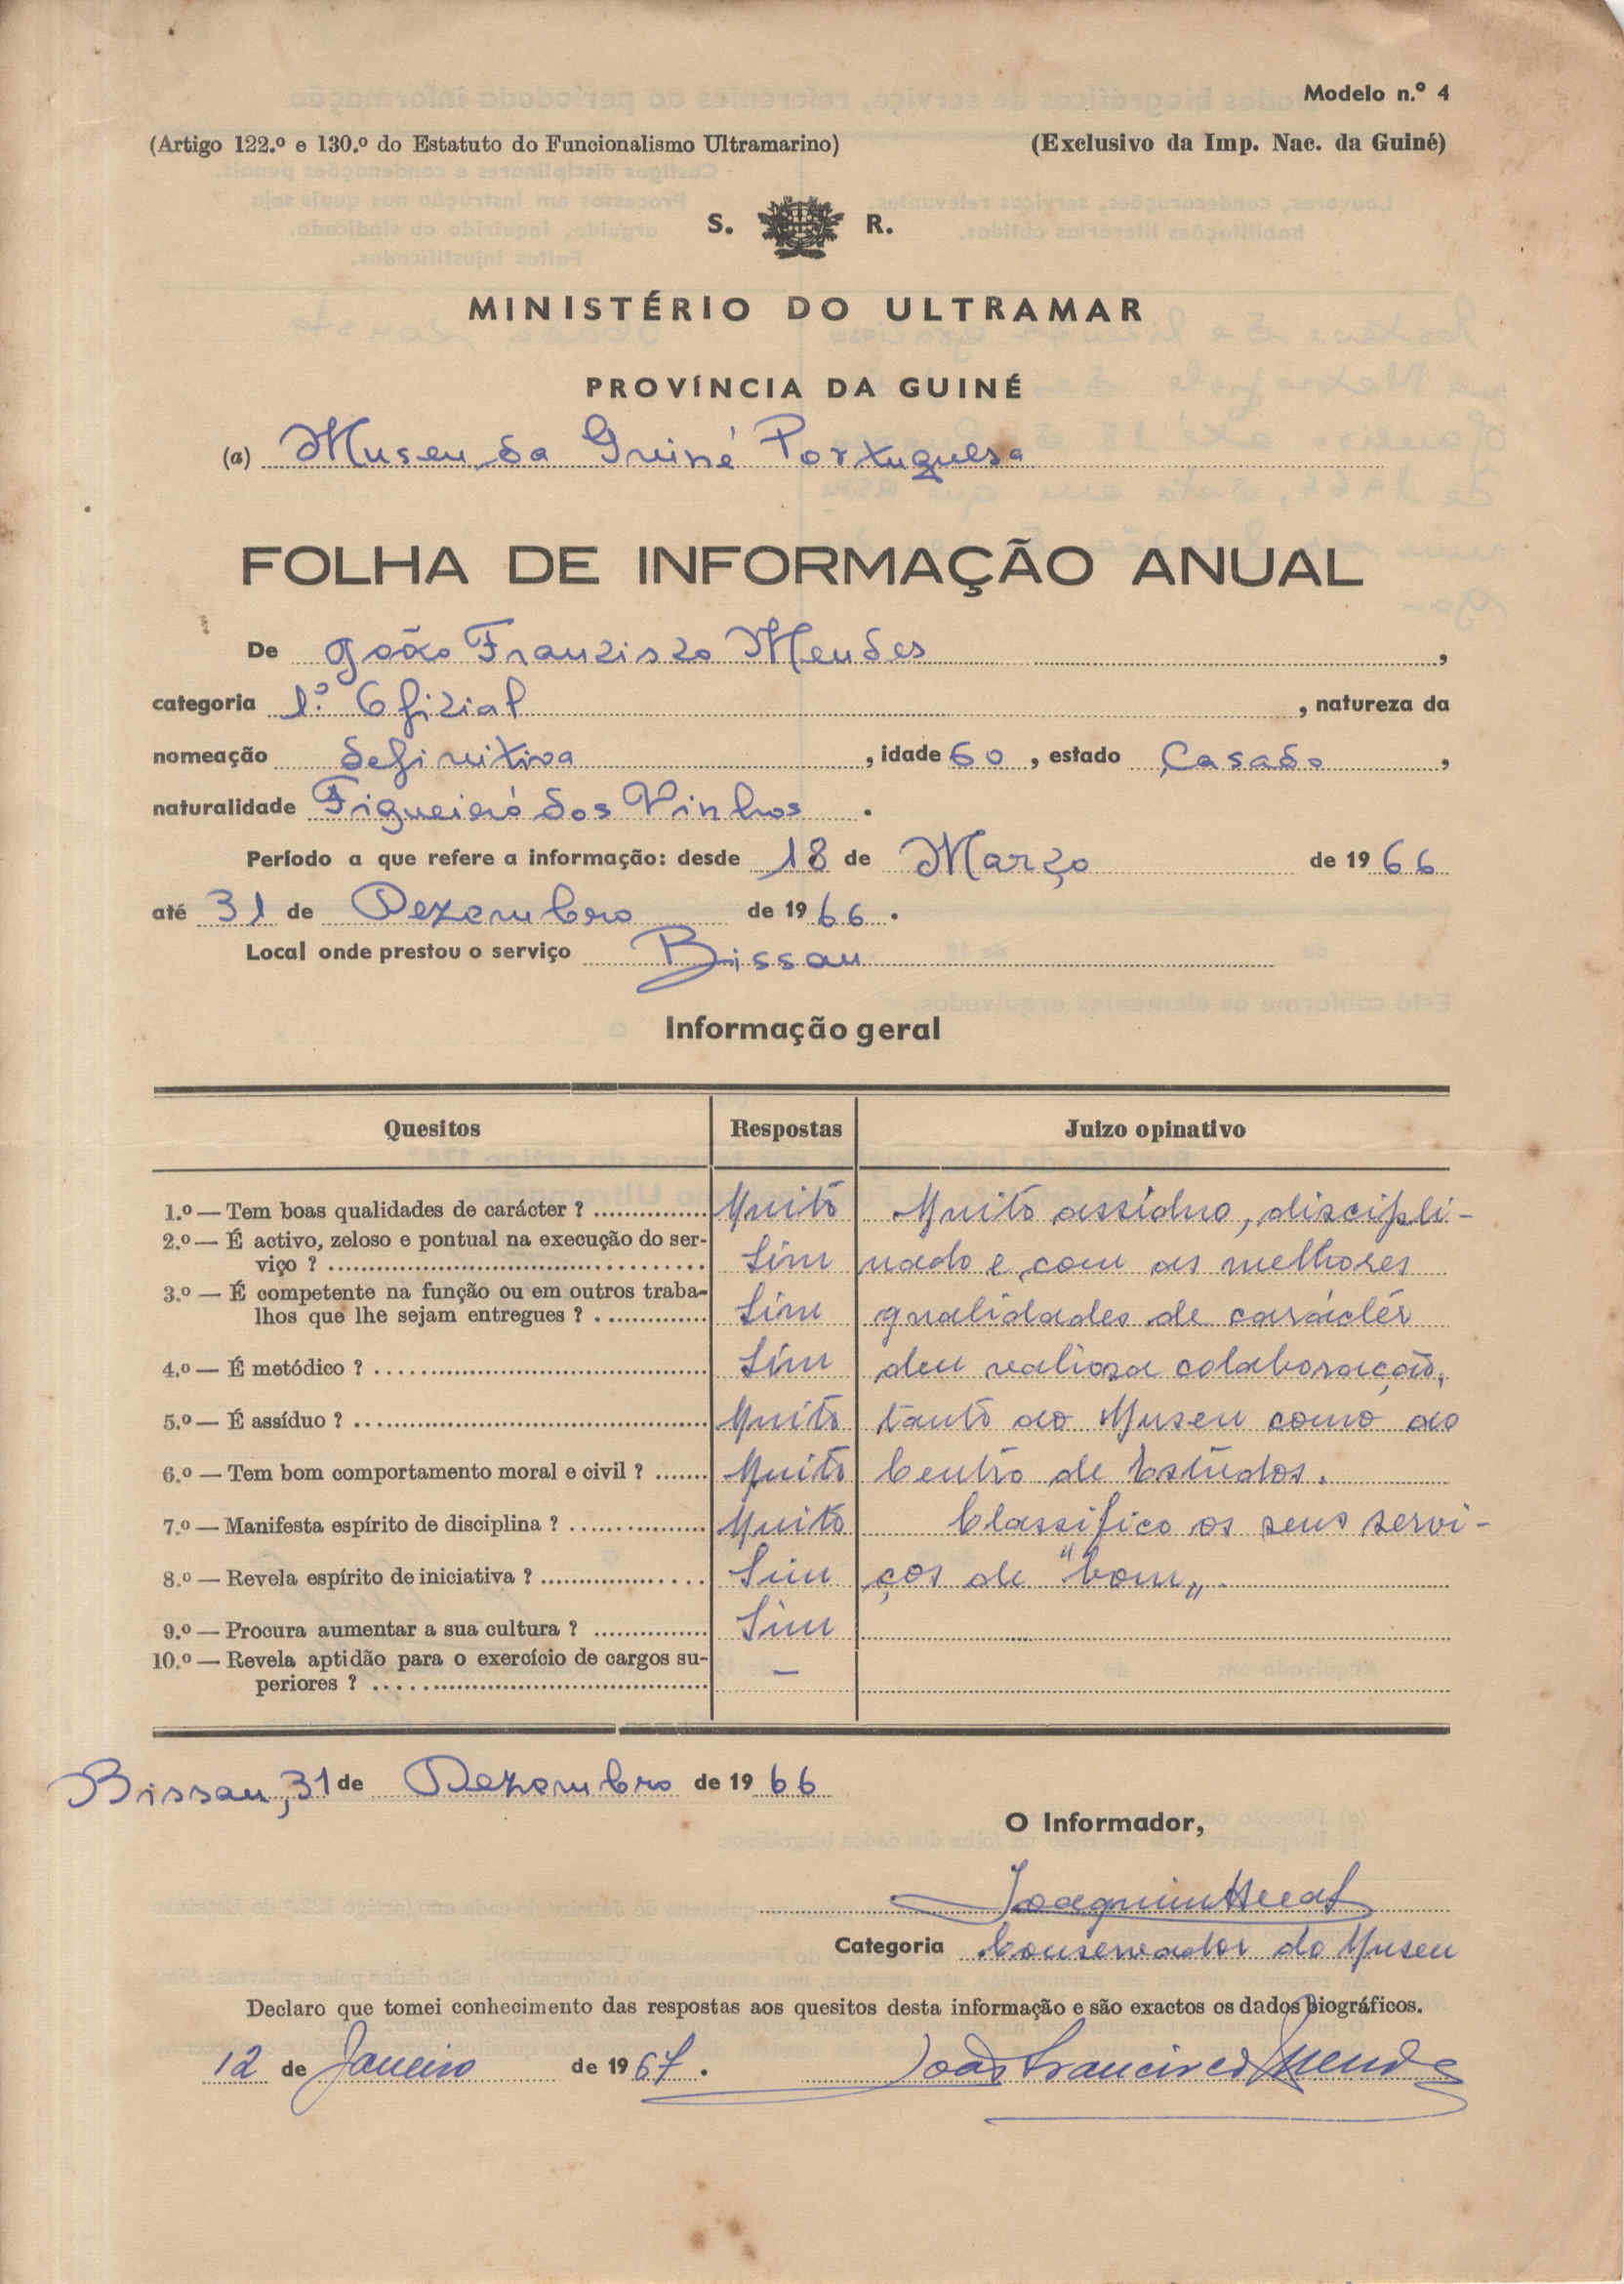 Modelo n.º 4
(Artigo 122.º e 130.º do Estatuto do Funcionalismo Ultramarino) (Exclusivo da Imp. Nac. da Guiné)
S. R.
MINISTÉRIO DO ULTRAMAR
PROVÍNCIA DA GUINÉ
(a) Museu da Guiné Portuguesa
FOLHA DE INFORMAÇÃO ANUAL
De João Francisco Mendes,
categoria 1.º Oficial, natureza da
nomeação definitiva, idade 60, estado Casado,
naturalidade Figueiró dos Vinhos.
Período a que refere a informação: desde 18 de Março de 1966
até 31 de Dezembro de 1966.
Local onde prestou o serviço Bissau
Informação geral
Quesitos Respostas Juizo opinativo
1.º — Tem boas qualidades de carácter ? Muito Muito assíduo, discipli-
2.º — É activo, zeloso e pontual na execução do ser-
viço ? Sim nado e com as melhores
3.º — É competente na função ou em outros traba-
lhos que lhe sejam entregues ? Sim qualidades de carácter
4.º — É metódico ? Sim deu valiosa colaboração,
5.º — É assíduo ? Muito tanto ao Museu como ao
6.º — Tem bom comportamento moral e civil ? Muito Centro de Estudos.
7.º — Manifesta espírito de disciplina ? Muito Classifico os seus servi-
8.º — Revela espírito de iniciativa ? Sim ços de "bom".
9.º — Procura aumentar a sua cultura ? Sim
10.º — Revela aptidão para o exercício de cargos su-
periores ? —
Bissau, 31 de Dezembro de 1966
O Informador,
Joaquim
Categoria Conservador do Museu
Declaro que tomei conhecimento das respostas aos quesitos desta informação e são exactos os dados biográficos.
12 de Janeiro de 1967. João Francisco Mendes